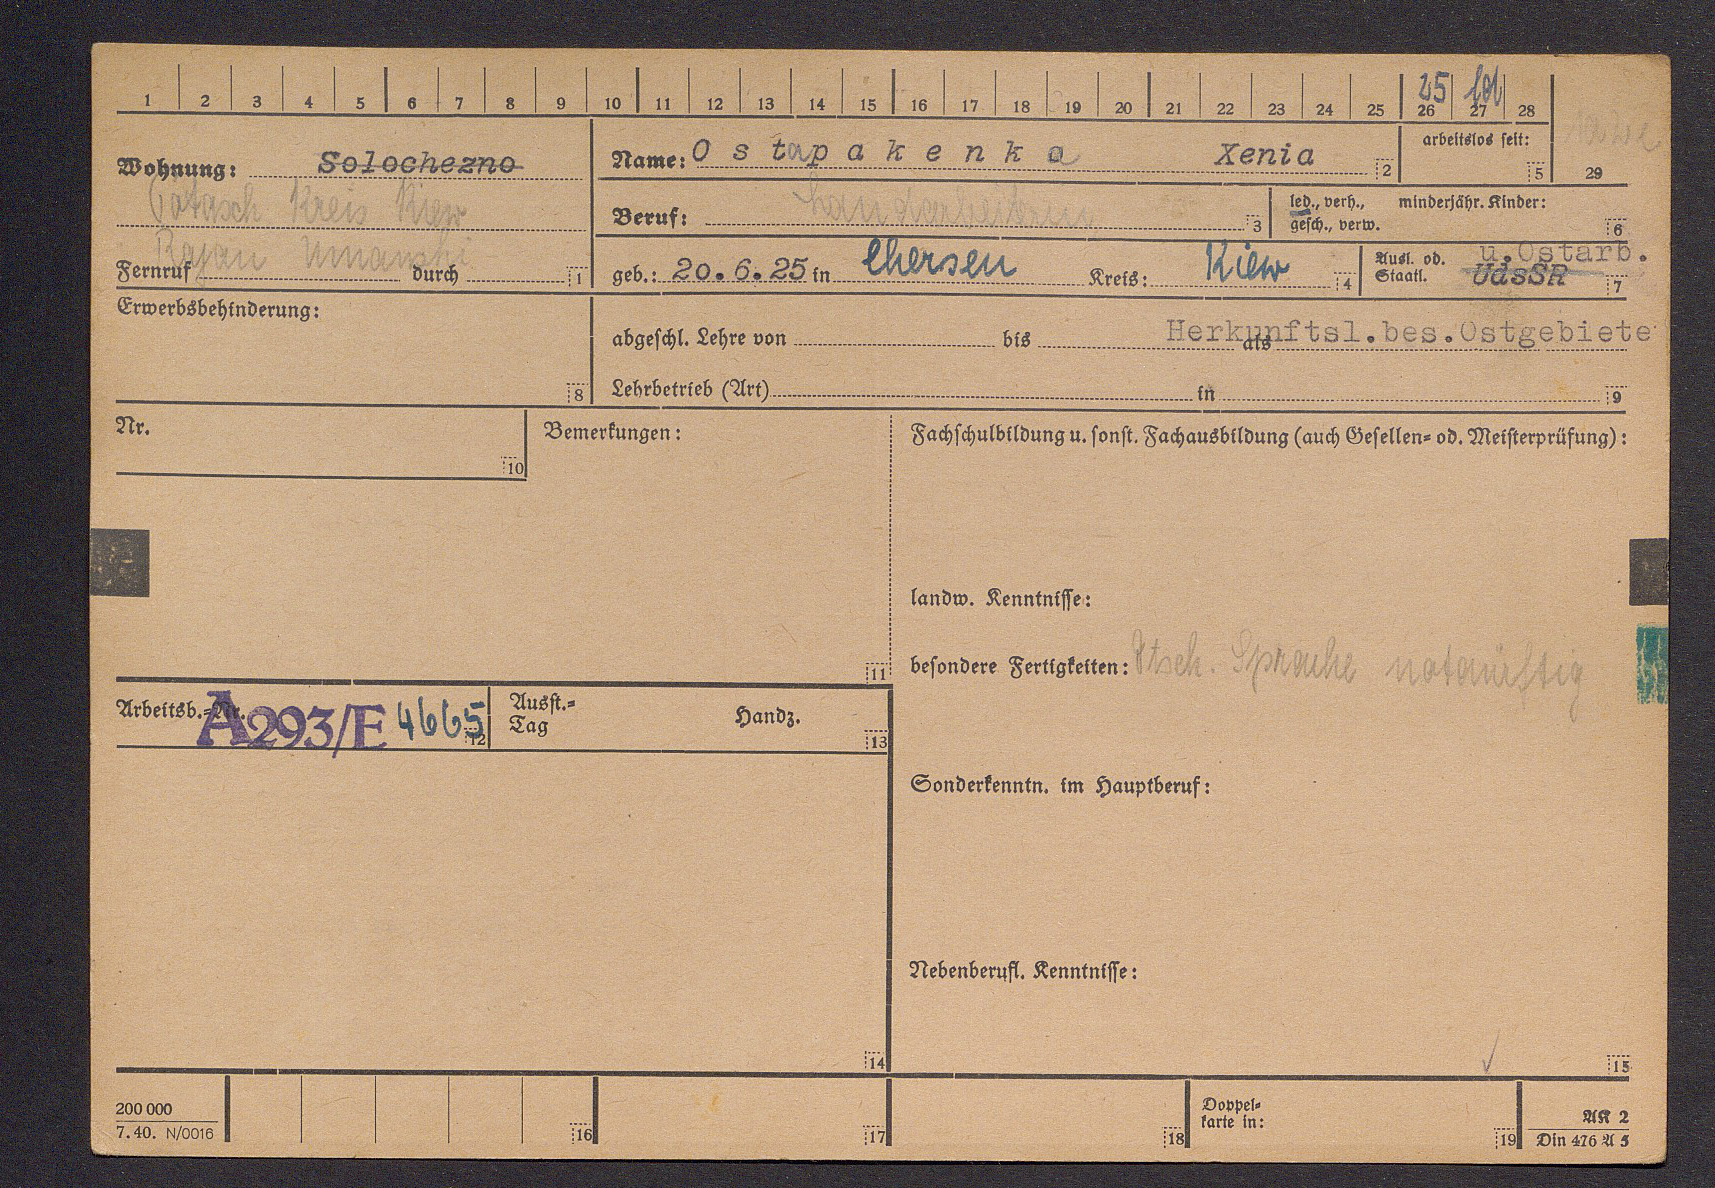 1 2 3 4 5 6 7 8 9 10 11 12 13 14 15 16 17 18 19 20 21 22 23 24 25 26 27 28
25
Wohnung: Solochezno
Name: Ostapakenka Xenia 2
arbeitslos seit: 5
29
Kreis Kiew
Rajon Umanski
Beruf: Landarbeiterin 3
led., verh., minderjähr. Kinder:
gesch., verw. 6
Fernruf durch 1
geb.: 20.6.25 in Chersen Kreis: Kiew 4
Ausl. od. u. Ostarb.
Staatl. UdSSR 7
Erwerbsbehinderung: 8
Herkunftsl.bes.Ostgebiete
abgeschl. Lehre von bis als
Lehrbetrieb (Art) in 9
Nr. 10
Bemerkungen: 11
Fachschulbildung u. sonst. Fachausbildung (auch Gesellen- od. Meisterprüfung):
landw. Kenntnisse:
besondere Fertigkeiten: Dtsch. Sprache notdürftig
Arbeitsb.-Nr. A293/E 4665 12
Ausst.-
Tag Handz. 13
Sonderkenntn. im Hauptberuf:
Nebenberufl. Kenntnisse:
14
15
200 000
7. 40. N/0016
16
17
18
Doppel-
karte in: 19
AK 2
Din 476 A 5